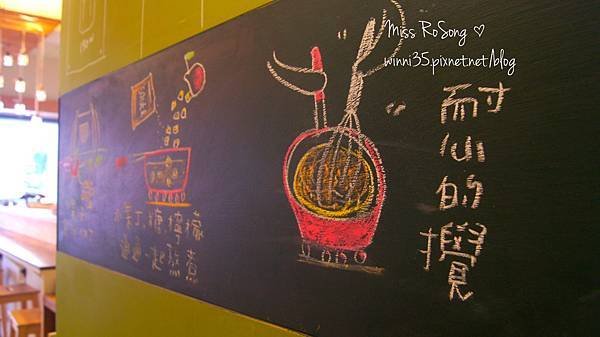 Miss RoSong ♡
winni35.pixnet.net/blog
耐心的攪
水果丁、糖、檸檬
通通一起熬煮